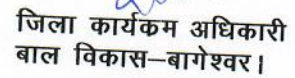 जिला कार्यकम अधिकारी
बाल विकास–बागेश्वर।